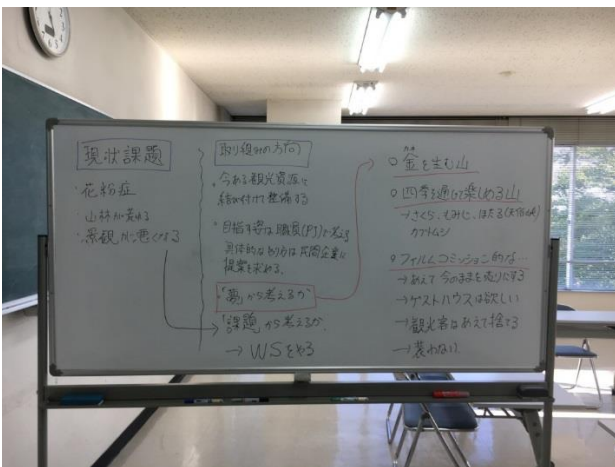 現状課題
・花粉症
・山林が荒れる
・景観が悪くなる
取り組みの方向
・今ある観光資源に
結び付けて整備する
・目指す姿は職員(PJ)で考える
具体的なやり方は民間企業に
提案を求める。
「夢」から考えるか
「課題」から考えるか、
→ WSをやる
○ 金を生む山
カネ
○ 四季を通じて楽しめる山
→さくら、もみじ、ほたる
カブトムシ
○フィルムコミッション的な…
→あえて今のままを売りにする
→ゲストハウスは欲しい
→観光客はあえて捨てる
→藁わない